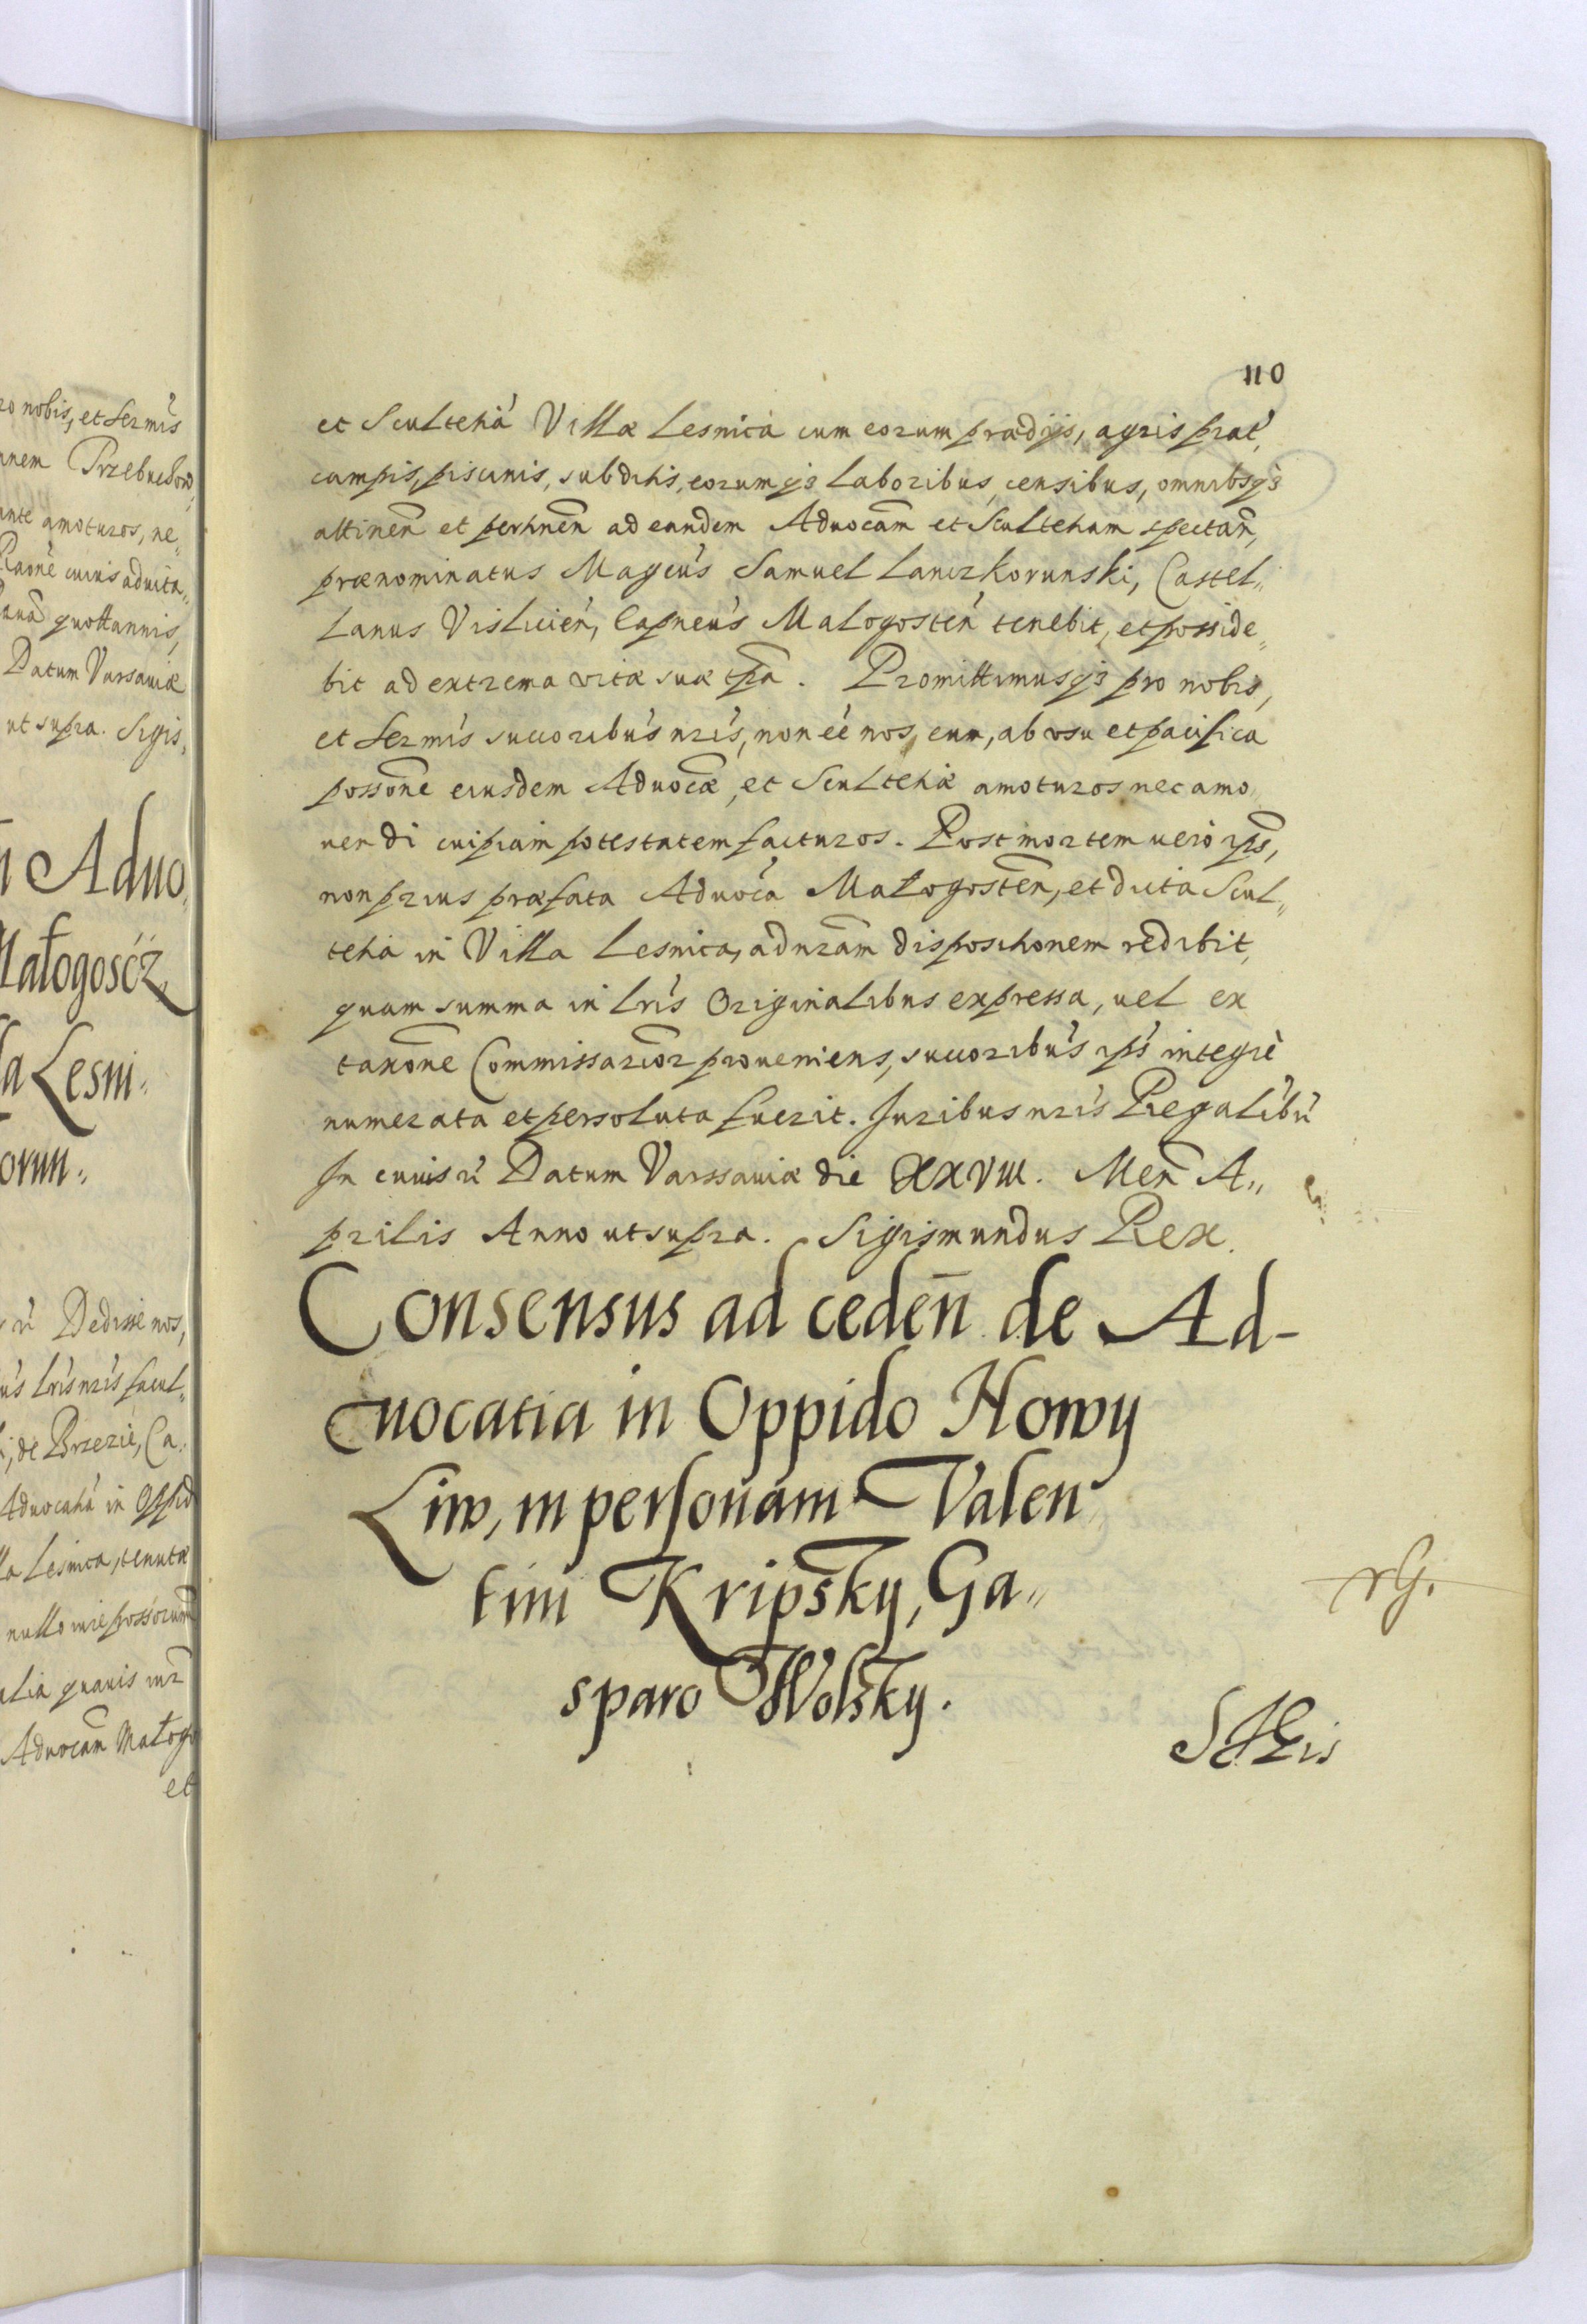 ro nobis, et Sermis
nem Przebuchow,
ante amoturos, ne„
Raone cuius advita„
quottannis,
Datum Varsaviæ
ut supra. Sigis„
Aduo„
Małogoscz
la Lesni„
orun„
Dedisse nos,
lris nris facul„
de Brzezie, Ca„
Advocatia in Oppid
la Lesnica, tenutæ
nullo iure possorum
alia quavis iur
Advocam Małogo
et
110
et Scultetia Villæ Lesnica cum eorum prædijs, agris prat,
campis, piscinis, subditis, eorumq3 laboribus, censibus, omnibsq3
attinen et pertinen ad eandem Advocam et Scultetiam spectan,
prænominatus Magcus Samuel Lanczkorunski, Castel„
lanus Vislicien, Capneus Malogosten tenebit, et posside„
bit ad extrema vitæ suæ tpa. Promittimusq3 pro nobis,
et Sermis succoribus nris, non eé nos, eum, ab usu et pacifica
possone eiusdem Advocæ, et Scultetiæ amoturos nec amo„
uendi cuipiam potestatem facturos. Post mortem uero ips,
non prius præfata Advoca Małogosten, et dicta Scul„
tetia in Villa Lesnica, ad nram dispositionem redibit,
quam summa in lris Originalibus expressa, uel ex
taxone Commissarior proueniens, succoribus ips integrè
numerata et persoluta fuerit. Juribus nris Regalibu
In cuius rı Datum Varssaviæ die XXVIII. Men A„
prilis Anno ut supra. Sigismundus Rex.
Consensus ad ceden de Ad-
uocatia in Oppido Nowy
Liw, in personam Valen„
tini Kripsky, Ga„
sparo Wolsky.
rG.